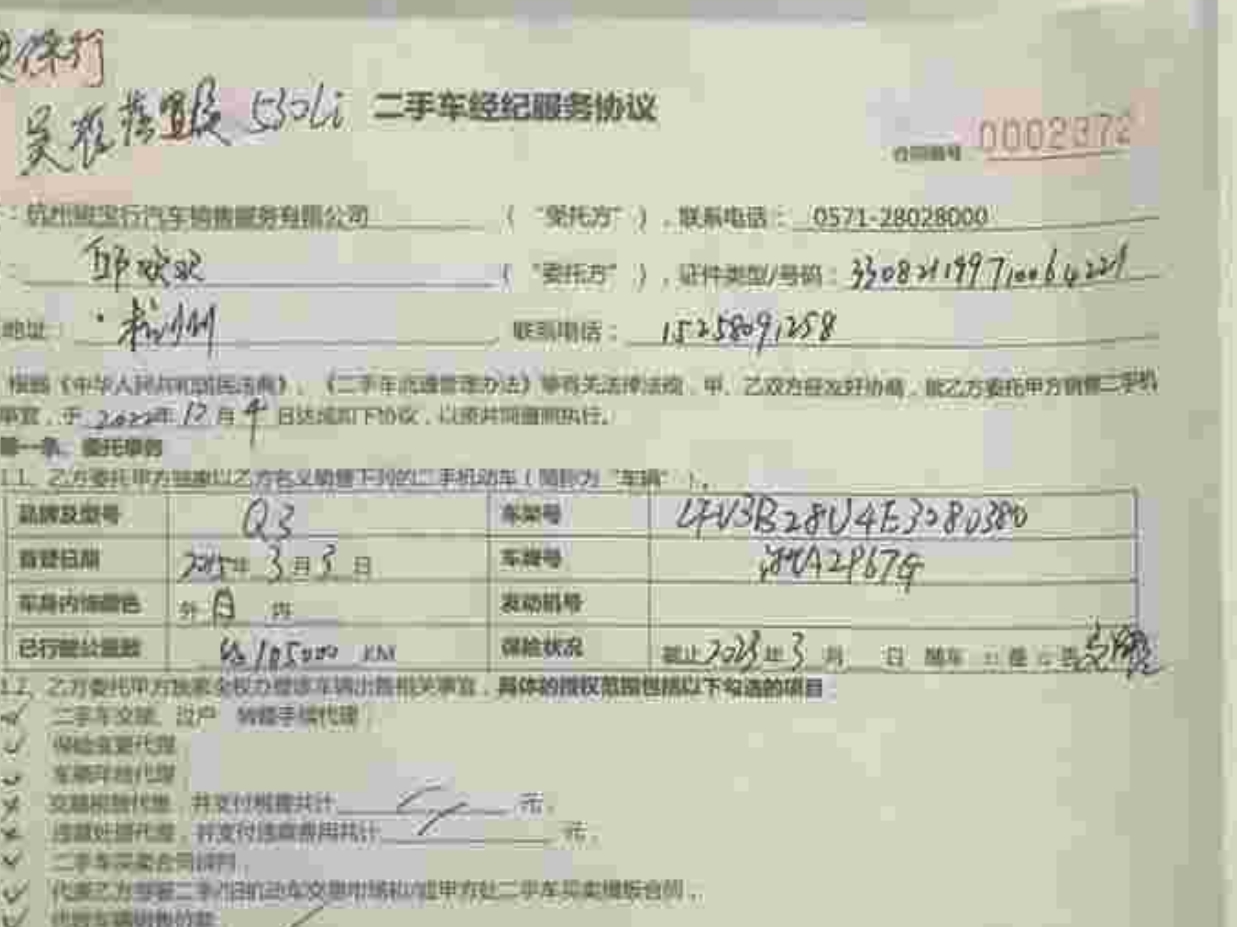 保行
吴 置换 530Li 二手车经纪服务协议
合同编号 0002372
：杭州 宝行汽车销售服务有限公司 （“受托方”），联系电话： 0571-28028000
： 邱欢欢 （“委托方”），证件类型/号码：
地址： 杭州 联系电话： 15258091258
根据《中华人民共和国民法典》、《二手车流通管理办法》等有关法律法规，甲、乙双方经友好协商，就乙方委托甲方销售二手机
事宜，于 2022年 12 月 4 日达成如下协议，以资共同遵照执行。
第一条、委托事务
1.1、乙方委托甲方独家以乙方名义销售下列的二手机动车（简称为“车辆”）。
品牌及型号 Q3 车架号 LFV3B28U4E3080380
首登日期 2015年 3 月 3 日 车牌号 浙A2P67G
车身内饰颜色 外 白 内 发动机号
已行驶公里数 约105000 KM 保险状况 截止2023年3 月 日 随车 □ 是 □ 否
1.2、乙方委托甲方独家全权办理该车辆出售相关事宜，具体的授权范围包括以下勾选的项目：
✓ 二手车交接、过户、转籍手续代理；
✓ 保险变更代理
✓ 车辆年检代理
× 交易税费代缴，并支付税费共计 元，
× 违章处理代理，并支付违章费用共计 元，
✓ 二手车买卖合同谈判
✓ 代表乙方签署二手/旧机动车交易市场和/或甲方处二手车买卖模板合同，
✓ 代收车辆销售价款